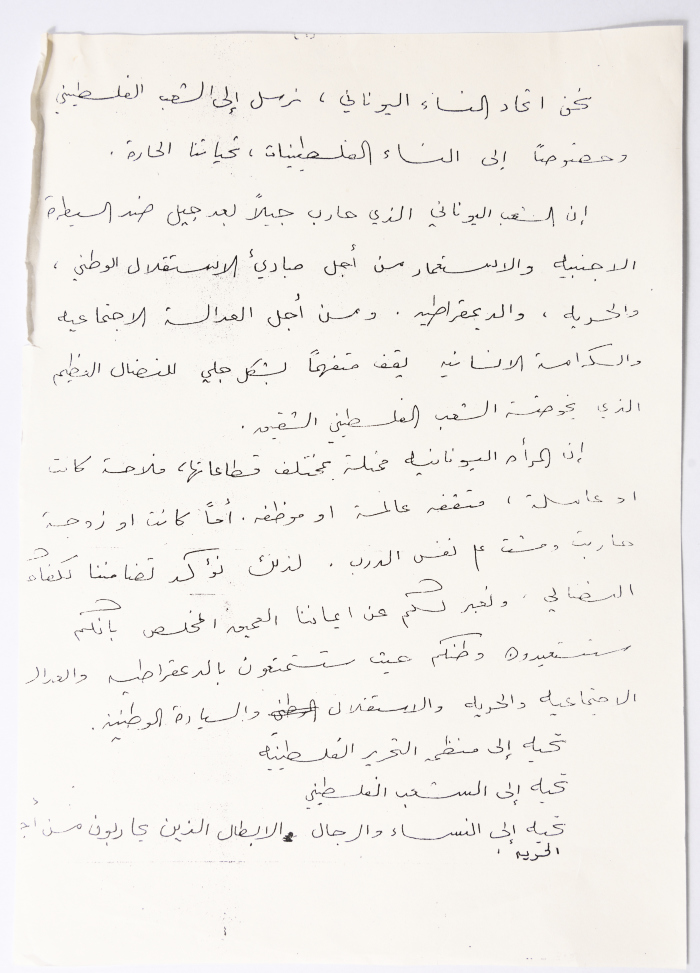 نحن اتحاد النساء اليوناني ، نرسل إلى الشعب الفلسطيني
وخصوصاً إلى النساء الفلسطينيات ، تحياتنا الحارة .
إن الشعب اليوناني الذي حارب جيلاً بعد جيل ضد السيطرة
الاجنبيه والاستعمار من أجل مبادئ الاستقلال الوطني ،
والحريه ، والديمقراطيه . ومن أجل العدالة الاجتماعيه
والكرامة الانسانيه يقف متفهماً بشكل جلي للنضال العظيم
الذي يخوضه الشعب الفلسطيني الشقيق .
إن المرأه اليونانيه ممثلة بمختلف قطاعاتها ، فلاحة كانت
او عاملة ، مثقفه عالمة او موظفه . أماً كانت او زوجة
حاربت ومشت على نفس الدرب . لذلك نؤكد تضامننا لكفاحكم
النضالي . ونعبر لكم عن ايماننا العميق المخلص بانكم
ستستعيدون وطنكم حيث ستتمتعون بالديمقراطيه والعدال
الاجتماعيه والحريه والاستقلال الوطني والسيادة الوطنيه .
تحيه إلى منظمة التحرير الفلسطينيه
تحيه إلى الشعب الفلسطيني
تحيه إلى النساء والرجال الابطال الذين يحاربون من أجـ
الحريه .